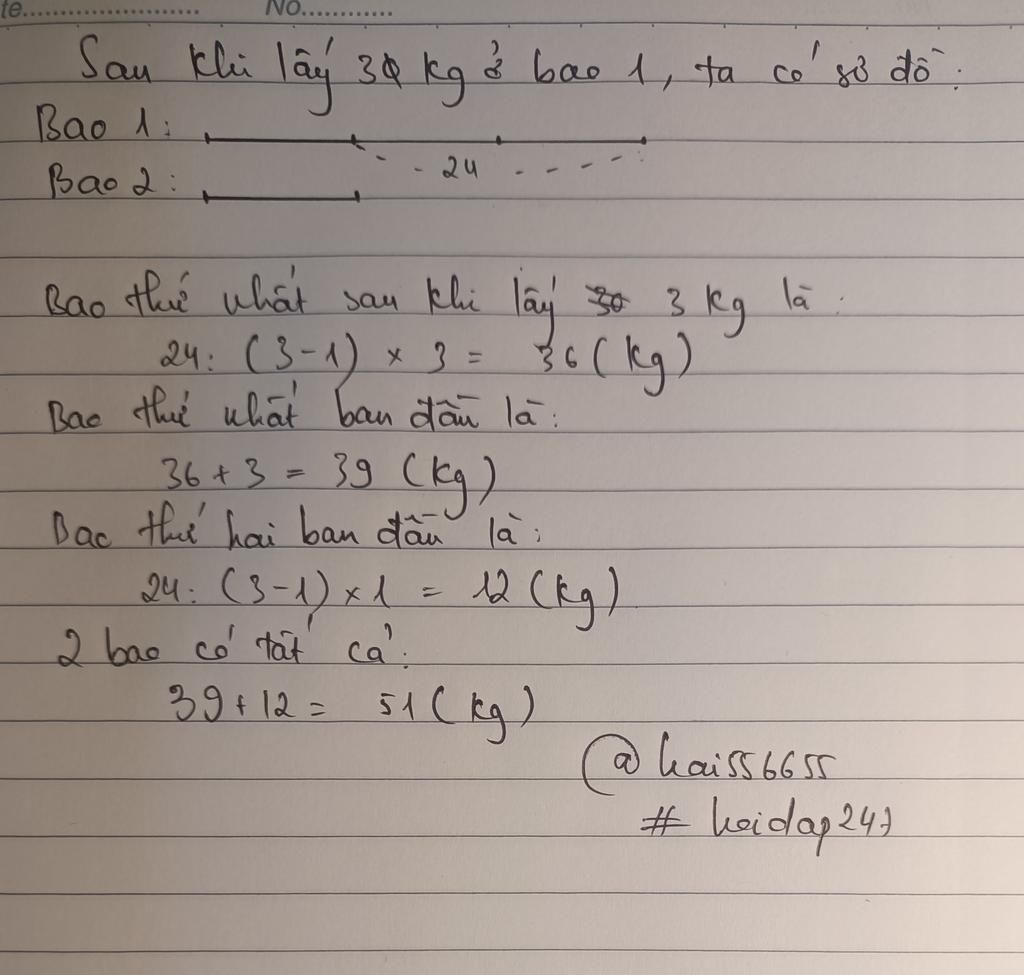 te.......................... No.............
Sau khi lấy 3 kg ở bao 1, ta có sơ đồ:
Bao 1:
24
Bao 2:
Bao thứ nhất sau khi lấy 3 kg là:
24: (3-1) × 3 = 36 (kg)
Bao thứ nhất ban đầu là:
36 + 3 = 39 (kg)
Bao thứ hai ban đầu là:
24: (3-1) × 1 = 12 (kg)
2 bao có tất cả:
39 + 12 = 51 (kg)
@hai556655
# hoidap247